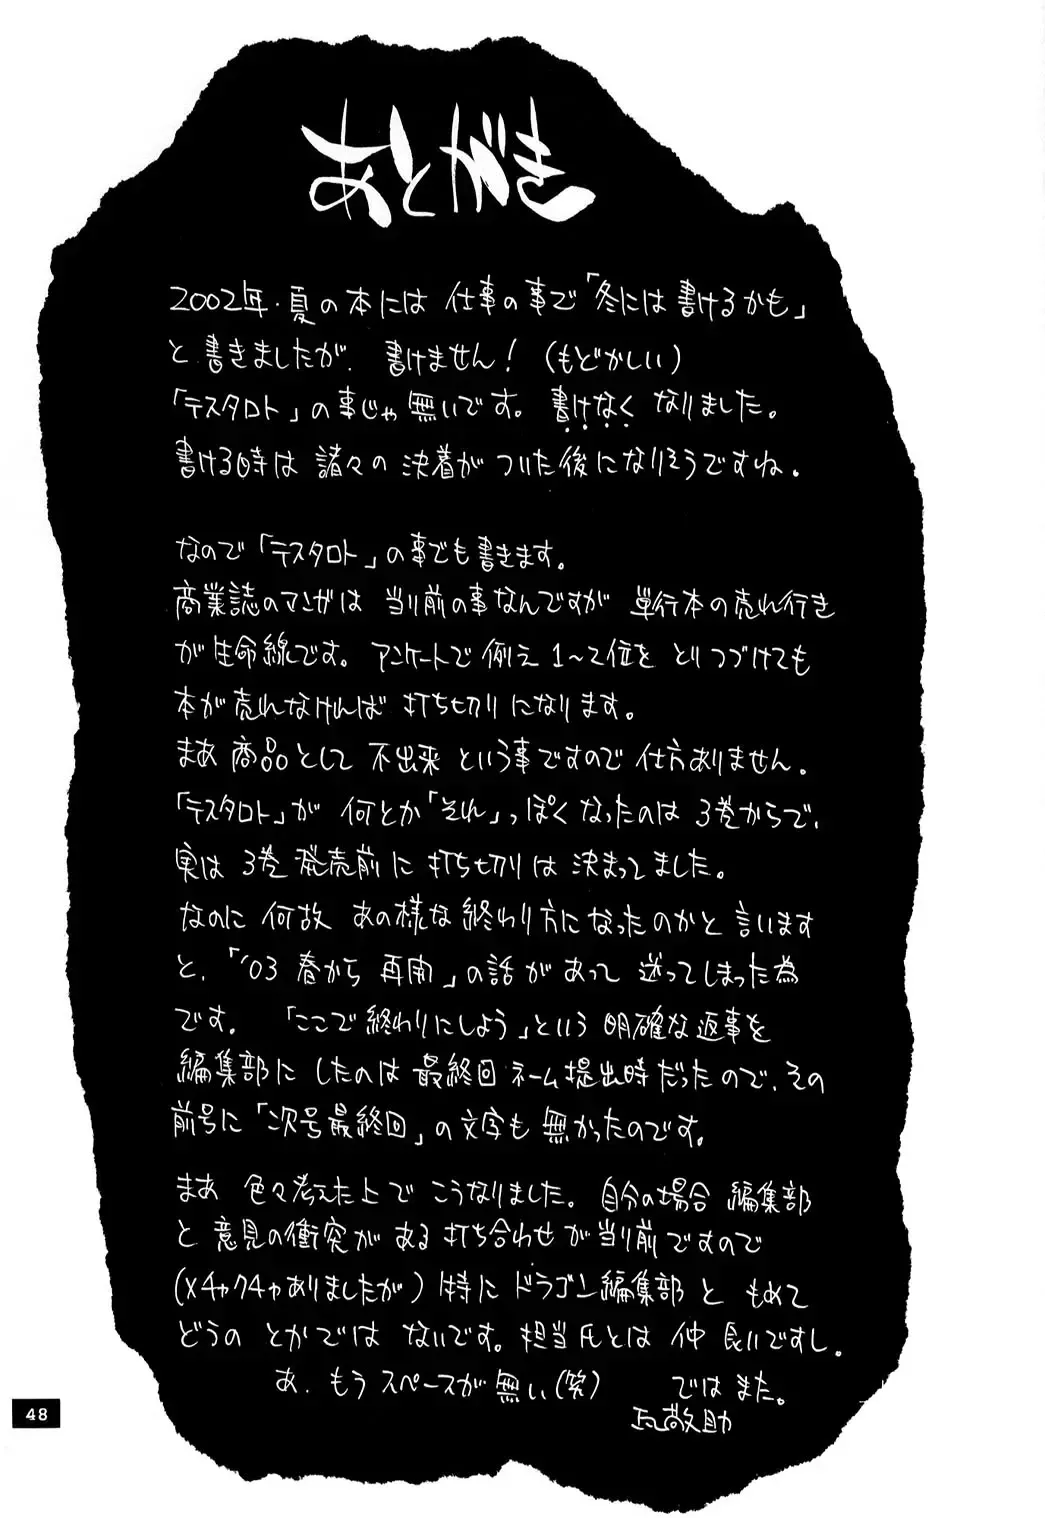 あとがき
2002年・夏の本には仕事の事で「冬には書けるかも」
と書きましたが、書けません！（もどかしい）
「テスタロト」の事じゃ無いです。書けなくなりました。
書ける時は諸々の決着がついた後になりそうですね。
なので「テスタロト」の事でも書きます。
商業誌のマンガは当り前の事なんですが単行本の売れ行き
が生命線です。アンケートで例え1～2位をとりつづけても
本が売れなければ打ち切りになります。
まあ商品として不出来という事ですので仕方ありません。
「テスタロト」が何とか「それ」っぽくなったのは3巻からで、
実は3巻発売前に打ち切りは決まってました。
なのに何故あの様な終わり方になったのかと言います
と、「'03春から再開」の話があって迷ってしまった為
です。「ここで終わりにしよう」という明確な返事を
編集部にしたのは最終回ネーム提出時だったので、その
前号に「次号最終回」の文字も無かったのです。
まあ色々考えた上でこうなりました。自分の場合編集部
と意見の衝突がある打ち合わせが当り前ですので
(メチャクチャありましたが)特にドラゴン編集部ともめて
どうのとかではないです。担当氏とは仲良いですし。
あ、もうスペースが無い(笑) ではまた。
敬助
48